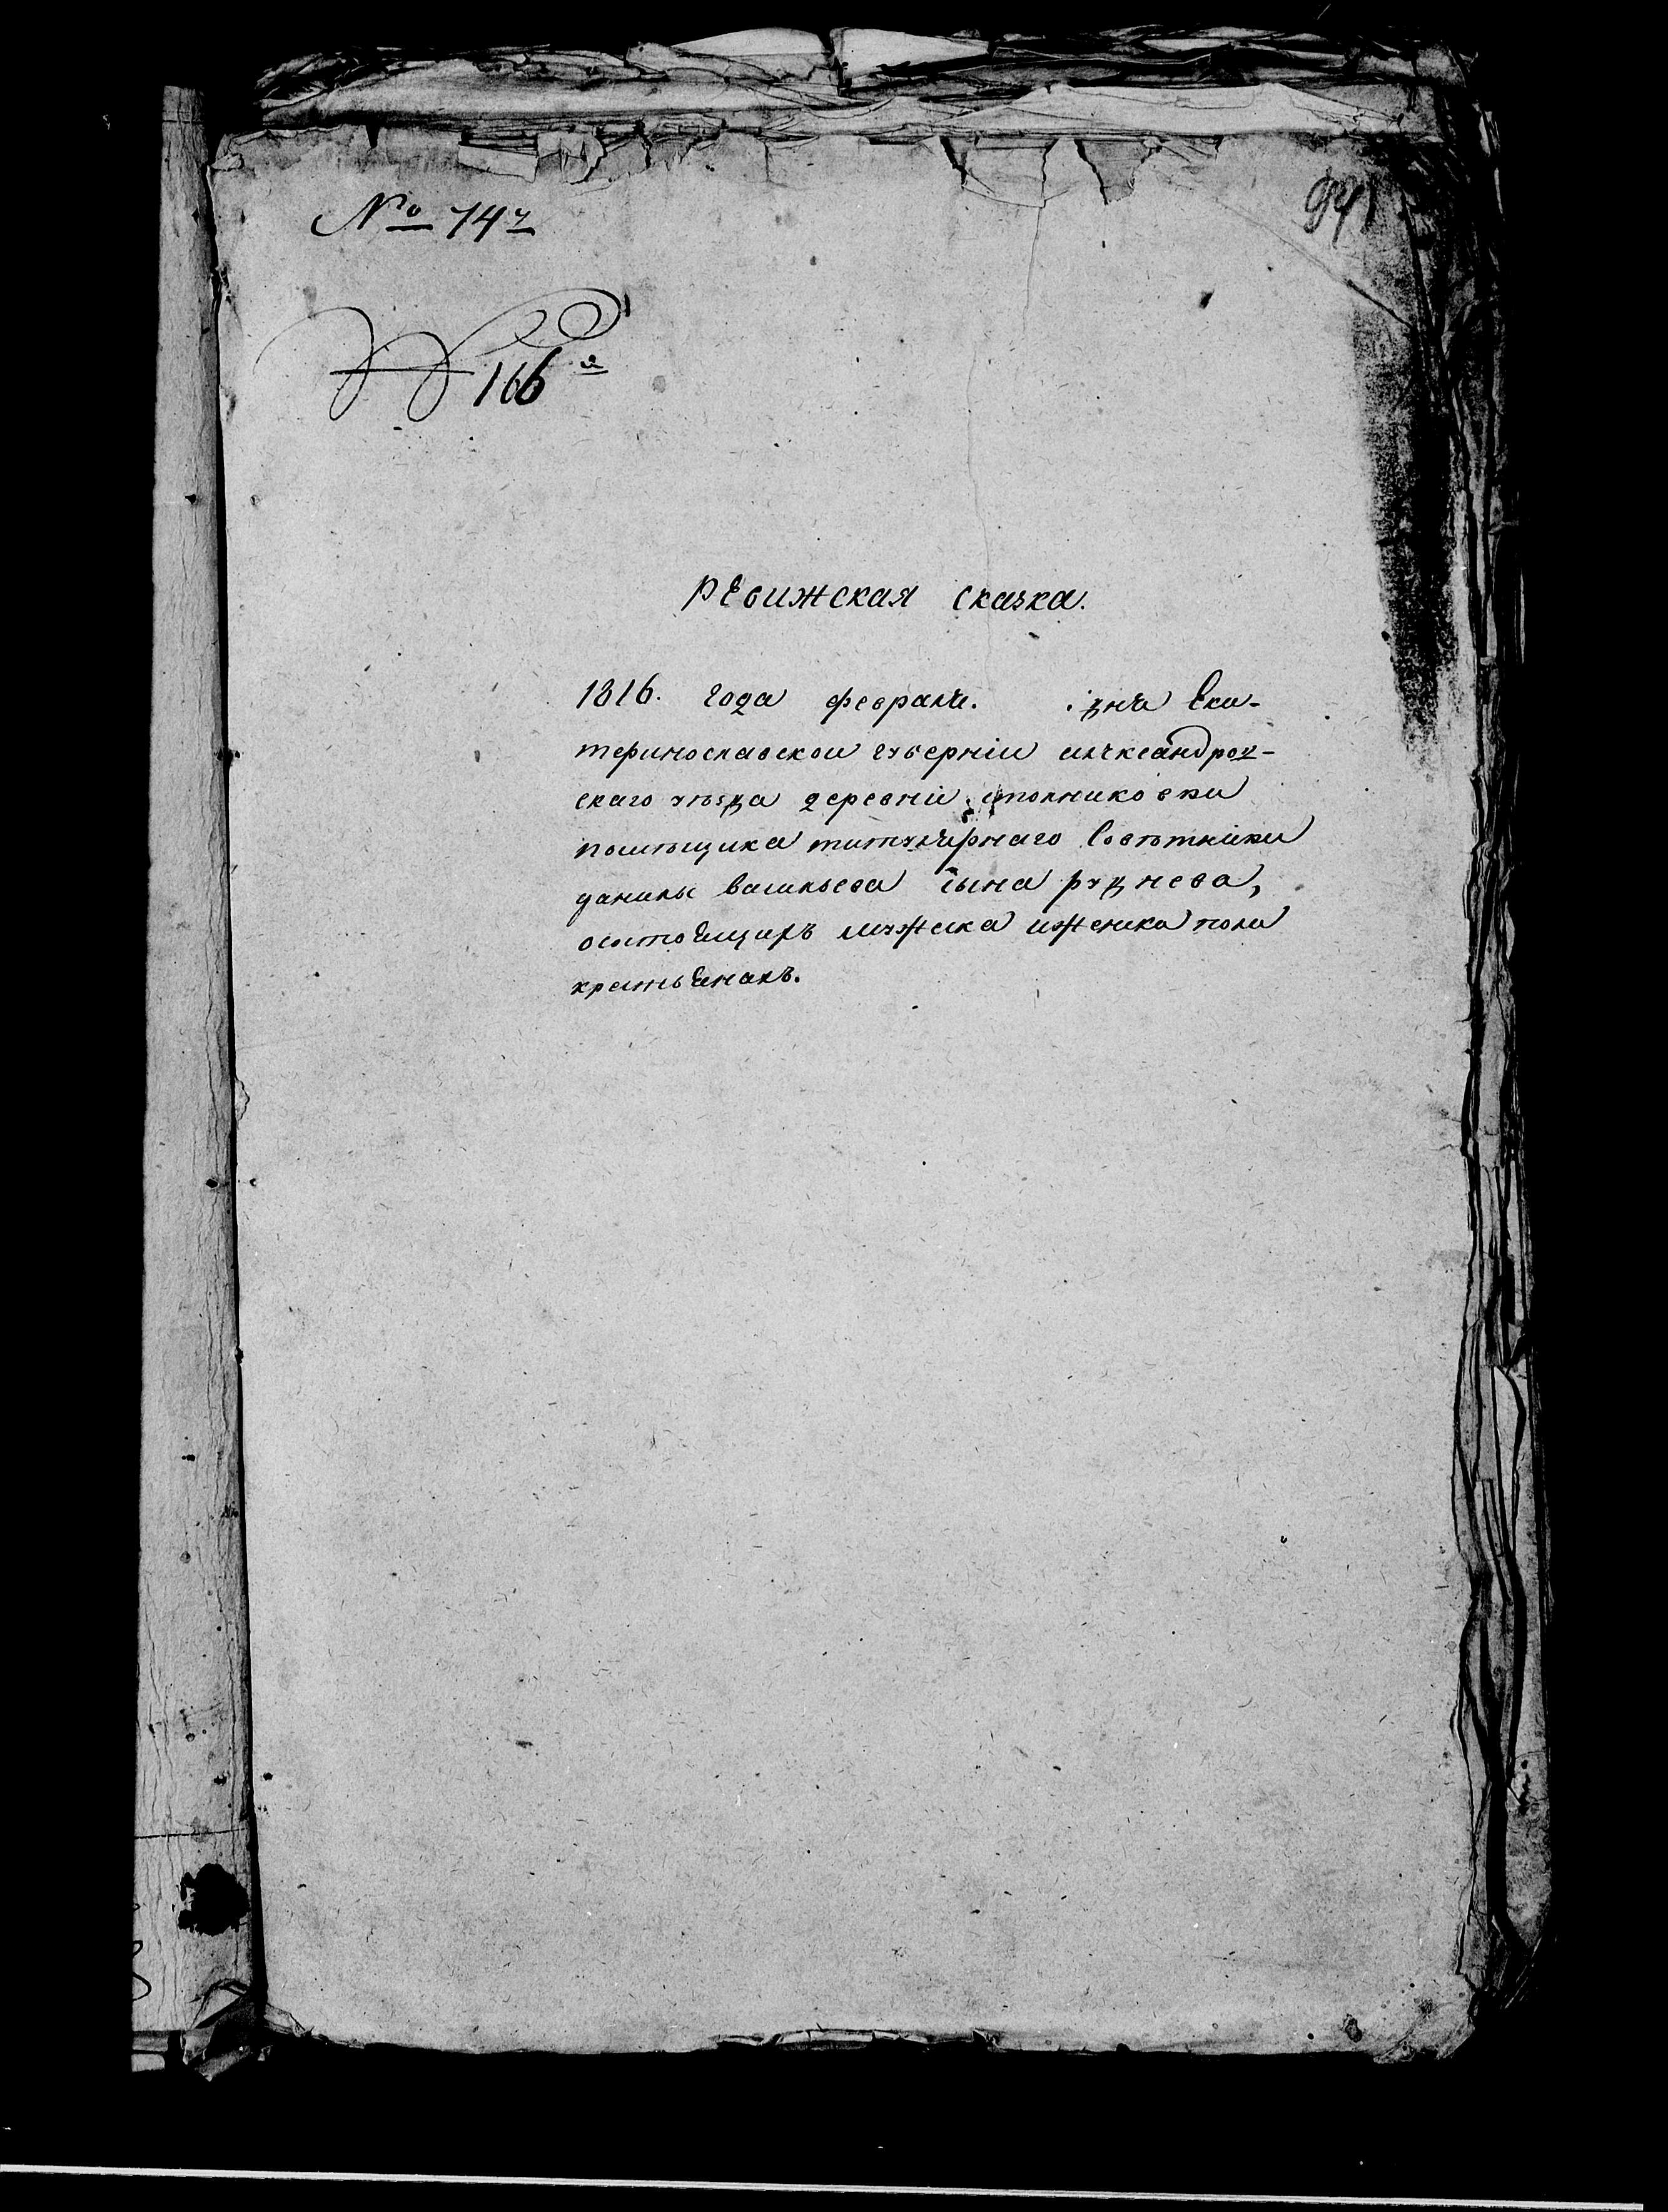 № 747
941
№ 166й
Ревижская сказка.
1816. года февраля. дня Ека-
теринославской губернии александров-
скаго уѣзда деревни столниковки
помѣщика титулярнаго Совѣтника
данилы васильева сына руднева,
осостоящихъ мужеска иженска пола
крестьянахъ.